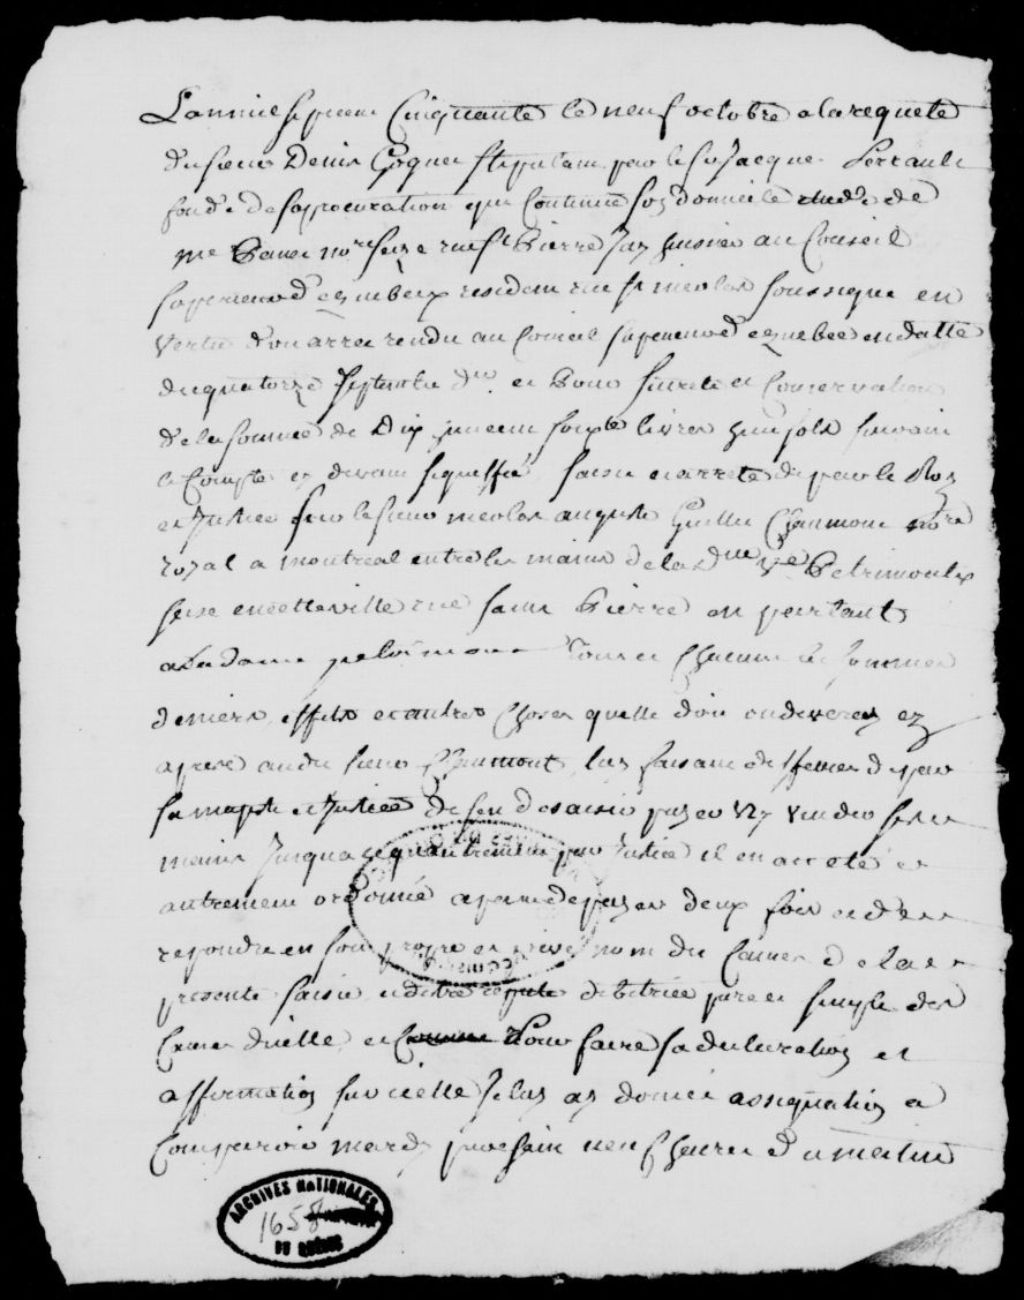 L'annee sept cent Cinquante le neuf octobre a la requete
du sieur Denis Goguet stipulant par le sr Jacque Perrault
fondé de sa procuration qui continue son domicile en de
me nore size rue st Pierre Jay huissier au Conseil
superieur de quebec resident rue st nicolas soussigne en
vertu d'un arrest rendu au Conseil superieur de quebec en datte
du quatorze septembre der et pour seureté et conservation
de la somme de Dix livres sols suivant
le compte saisie et arreté de par le Roy
et Justice sur le sieur nicolas auguste Guillet Chaumont nore
royal a montreal entre les mains de la Dme ve Petrimoulx
size en cette ville rue saint Pierre en parlant
a la dame petrimoux toutes et chacune les sommes
deniers effets et autres choses quelle doit ou devera cy
apres audit sieur Chaumont luy faisant deffenses de par
sa majesté et Justice de sen desaisir payer ny vuider ses
mains Jusqua ce quautrement par Justice il en aye eté
autrement ordonné a peine de payer deux fois et den
repondre en son propre et privé nom du Causes de la
presente saisie et detre reputé debitrice pure et simple des
Causes dicelle et Pour faire sa declaration et
affirmation sur icelle Je luy ay donné assignation a
Comparoir mardy prochain neuf heures du matin
ARCHIVES NATIONALES
1658
DU QUÉBEC